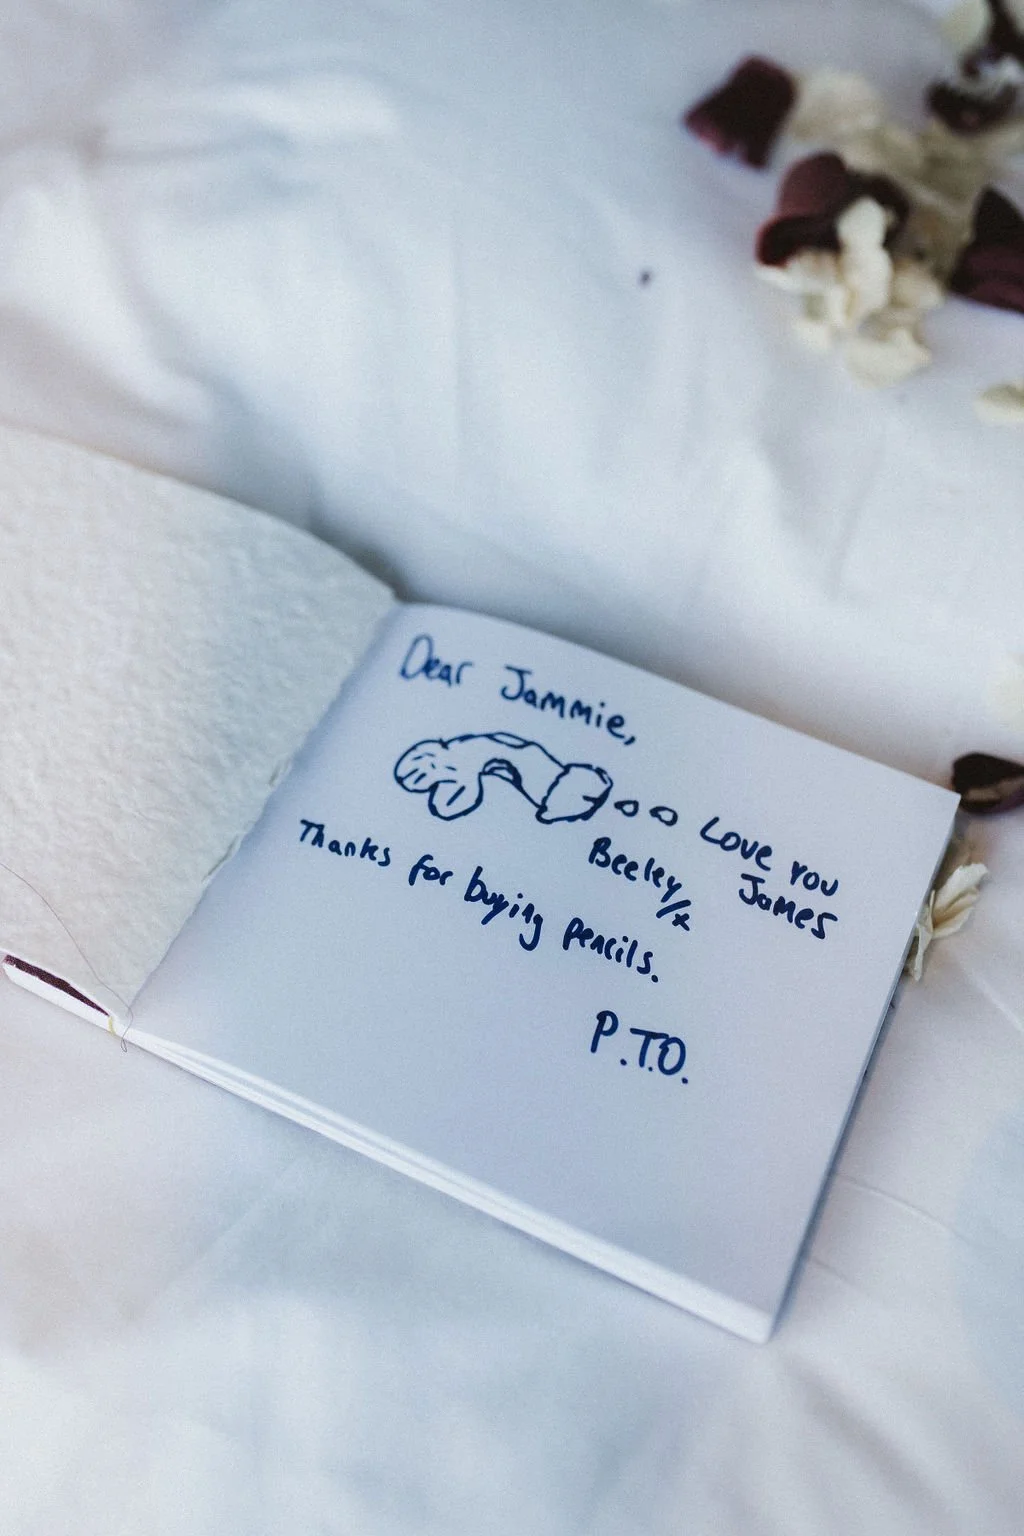 Dear Jammie,
Love you
James
Beeley/x
Thanks for buying pencils.
P.T.O.